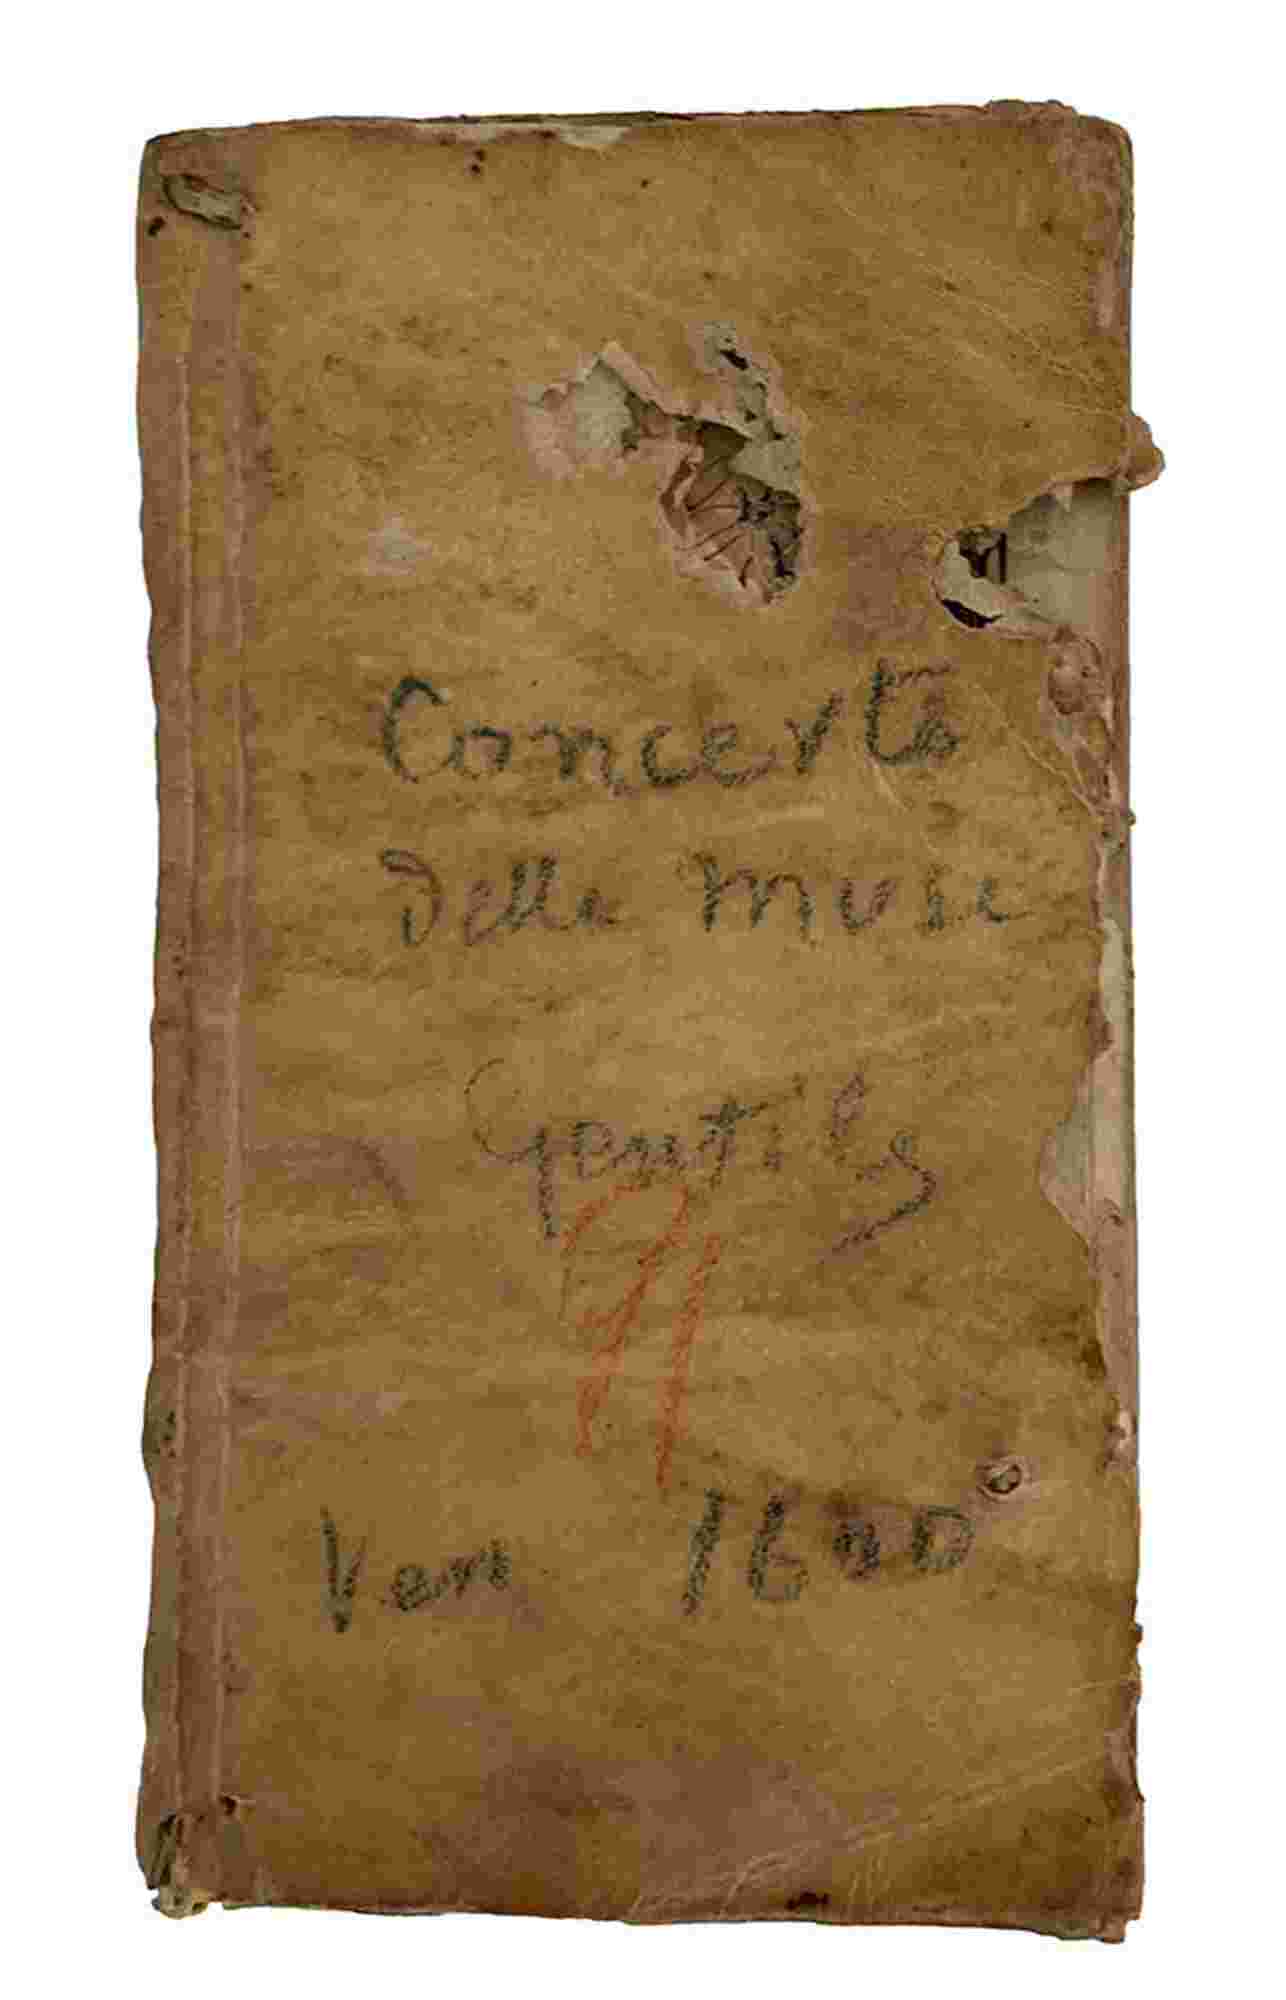 Concerto
delle muse
Gentile
Ven 1600